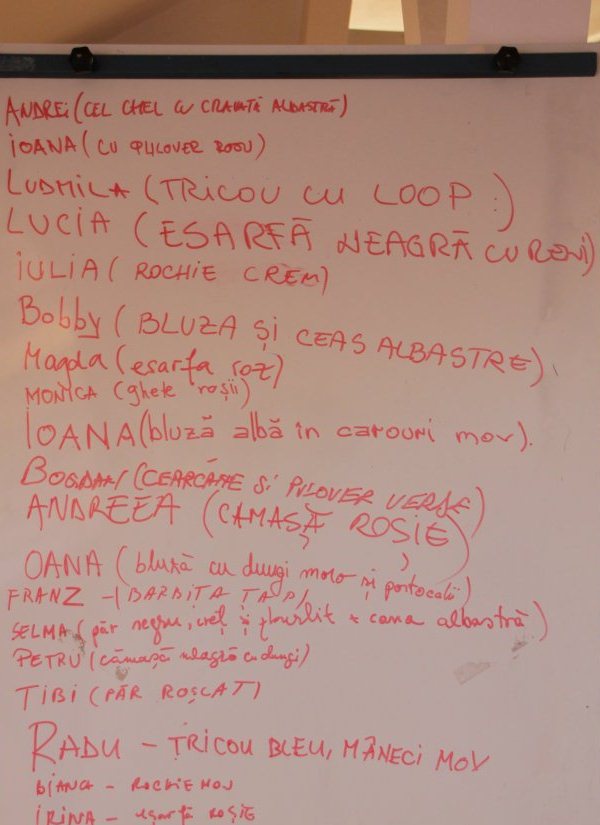 ANDREI (CEL CHEL CU CRAVATĂ ALBASTRĂ)
IOANA (CU PULOVER ROȘU)
LUDMILA (TRICOU CU LOOP :)
LUCIA (ESARFĂ NEAGRĂ CU ROȘII)
IULIA (ROCHIE CREM)
Bobby (BLUZA ȘI CEAS ALBASTRE)
Magda (esarfa roz)
MONICA (ghete roșii)
IOANA (bluză albă în carouri mov).
BOGDAN (CEARCĂNE ȘI PULOVER VERDE)
ANDREEA (CAMAȘĂ ROȘIE)
OANA (bluză cu dungi maro și portocalii)
FRANZ - (BARBITA ȚAP)
SELMA (păr negru, creț și ciufulit + cana albastră)
PETRU (cămașă neagră cu dungi)
TIBI (PĂR ROȘCAT)
RADU - TRICOU BLEU, MÂNECI MOV
BIANCA - ROCHIE MOV
IRINA - eșarfă ROȘIE